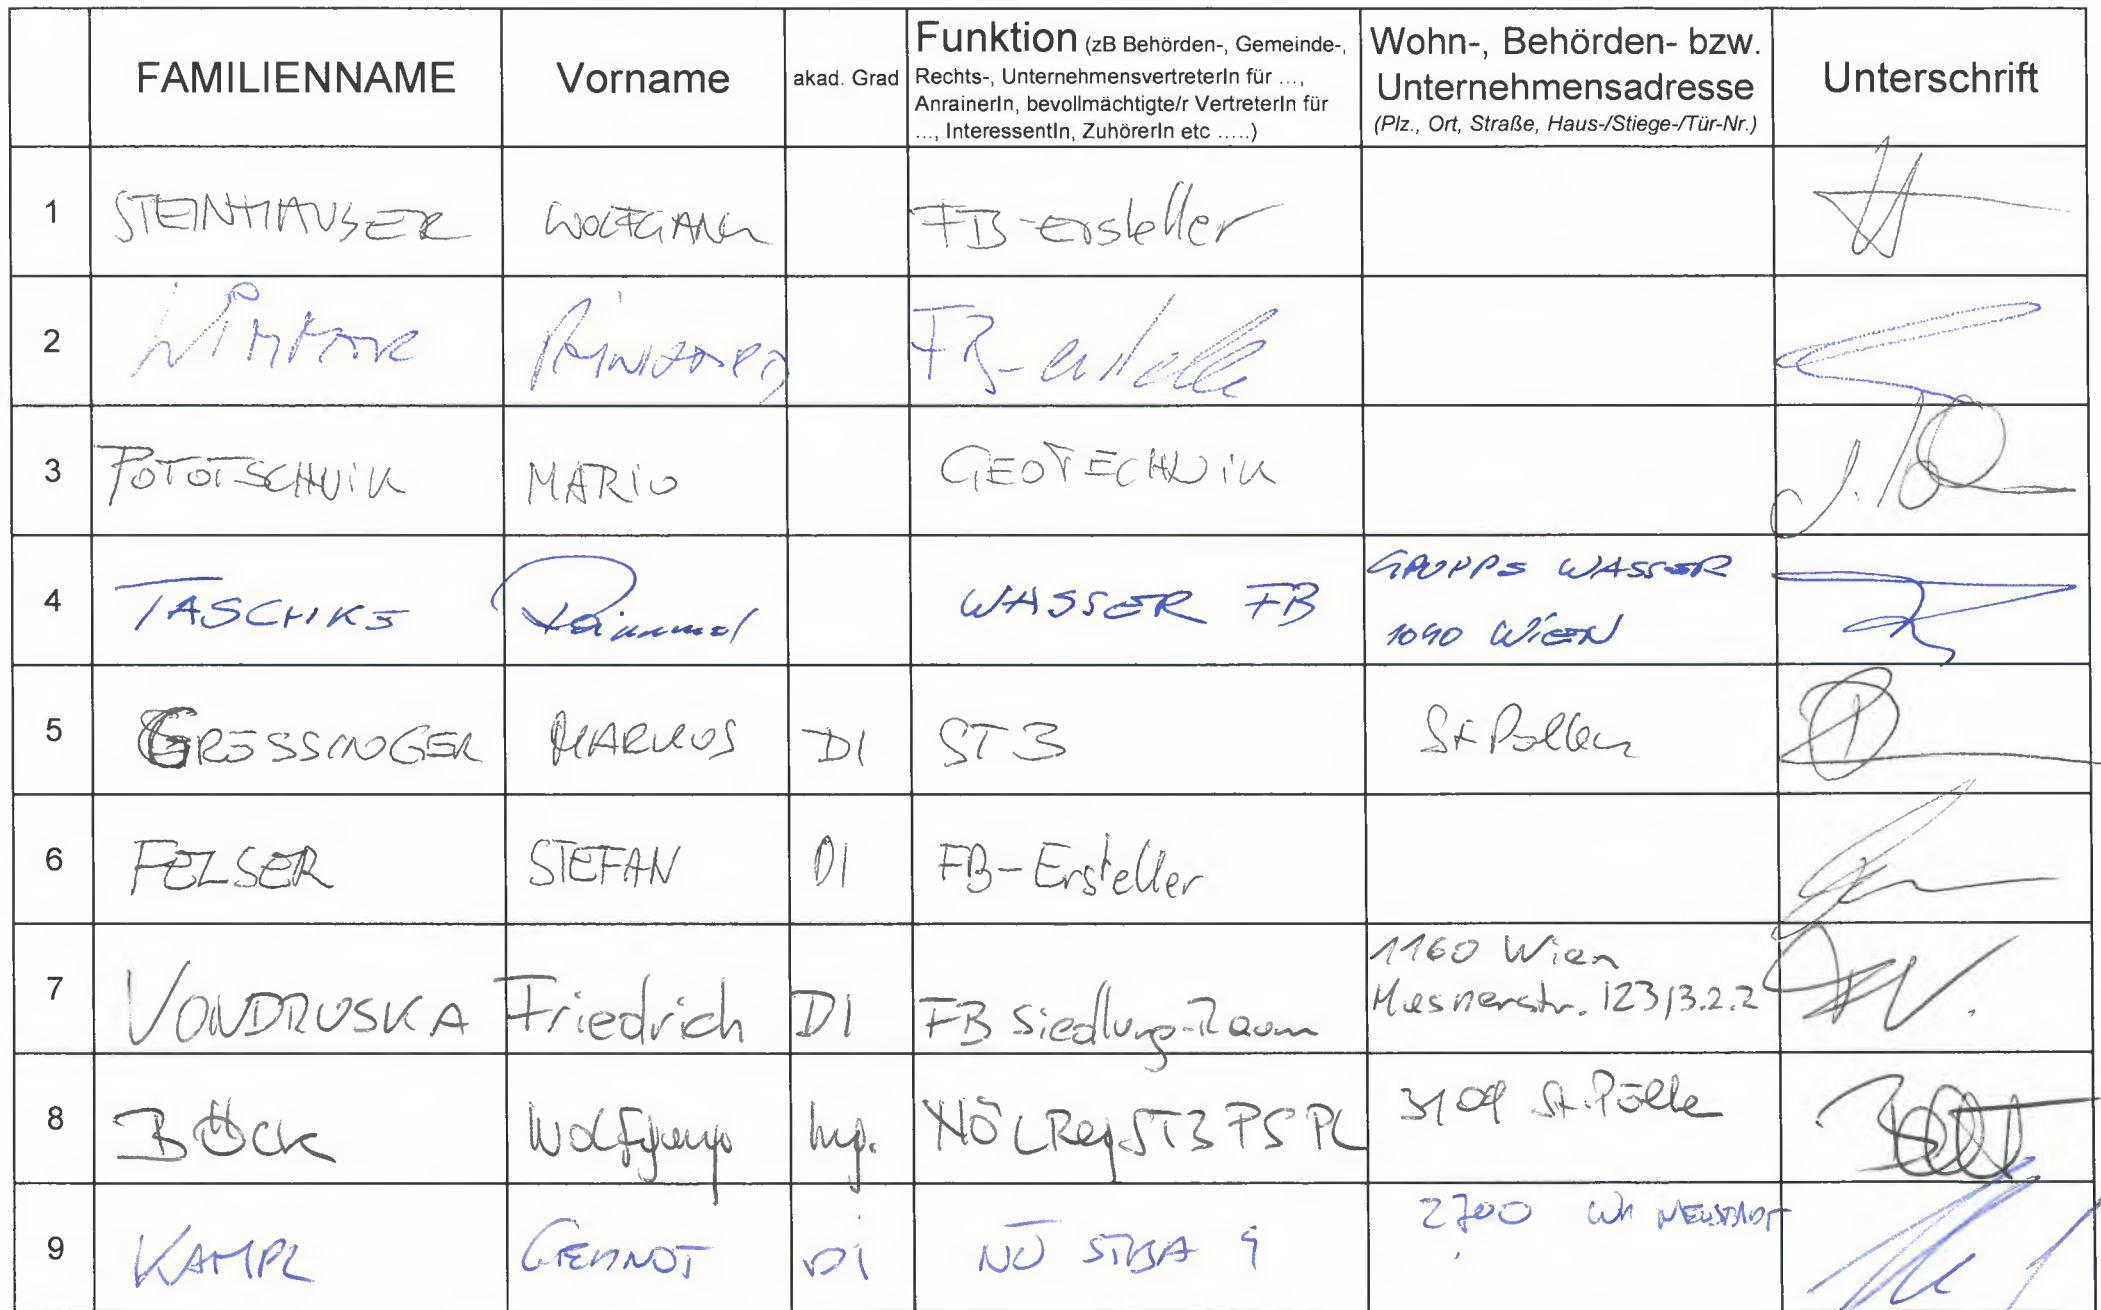 FAMILIENNAME Vorname akad. Grad Funktion (zB Behörden-, Gemeinde-,
Rechts-, UnternehmensvertreterIn für ...,
AnrainerIn, bevollmächtigte/r VertreterIn für
..., InteressentIn, ZuhörerIn etc .....)
Wohn-, Behörden- bzw.
Unternehmensadresse
(Plz., Ort, Straße, Haus-/Stiege-/Tür-Nr.)
Unterschrift
1 STEINHAUSER WOLFGANG FB-ersteller
2 FB-erstelle
3 POTOTSCHNIK MARIO GEOTECHNIK
4 TASCHKE WASSER FB GRUPPE WASSER
1090 WIEN
5 GRESSINGER MARKUS DI ST3 St Pölten
6 FELSER STEFAN DI FB-Ersteller
7 VONDRUSKA Friedrich DI FB Siedlung-Raum 1160 Wien
123/3.2.2
8 BÖCK Wolfgang Ing. NÖ LReg ST3 PS PL 3109 St. Pölte
9 KAMPL GERNOT DI NÖ STBA 4 2700 WR NEUSTADT